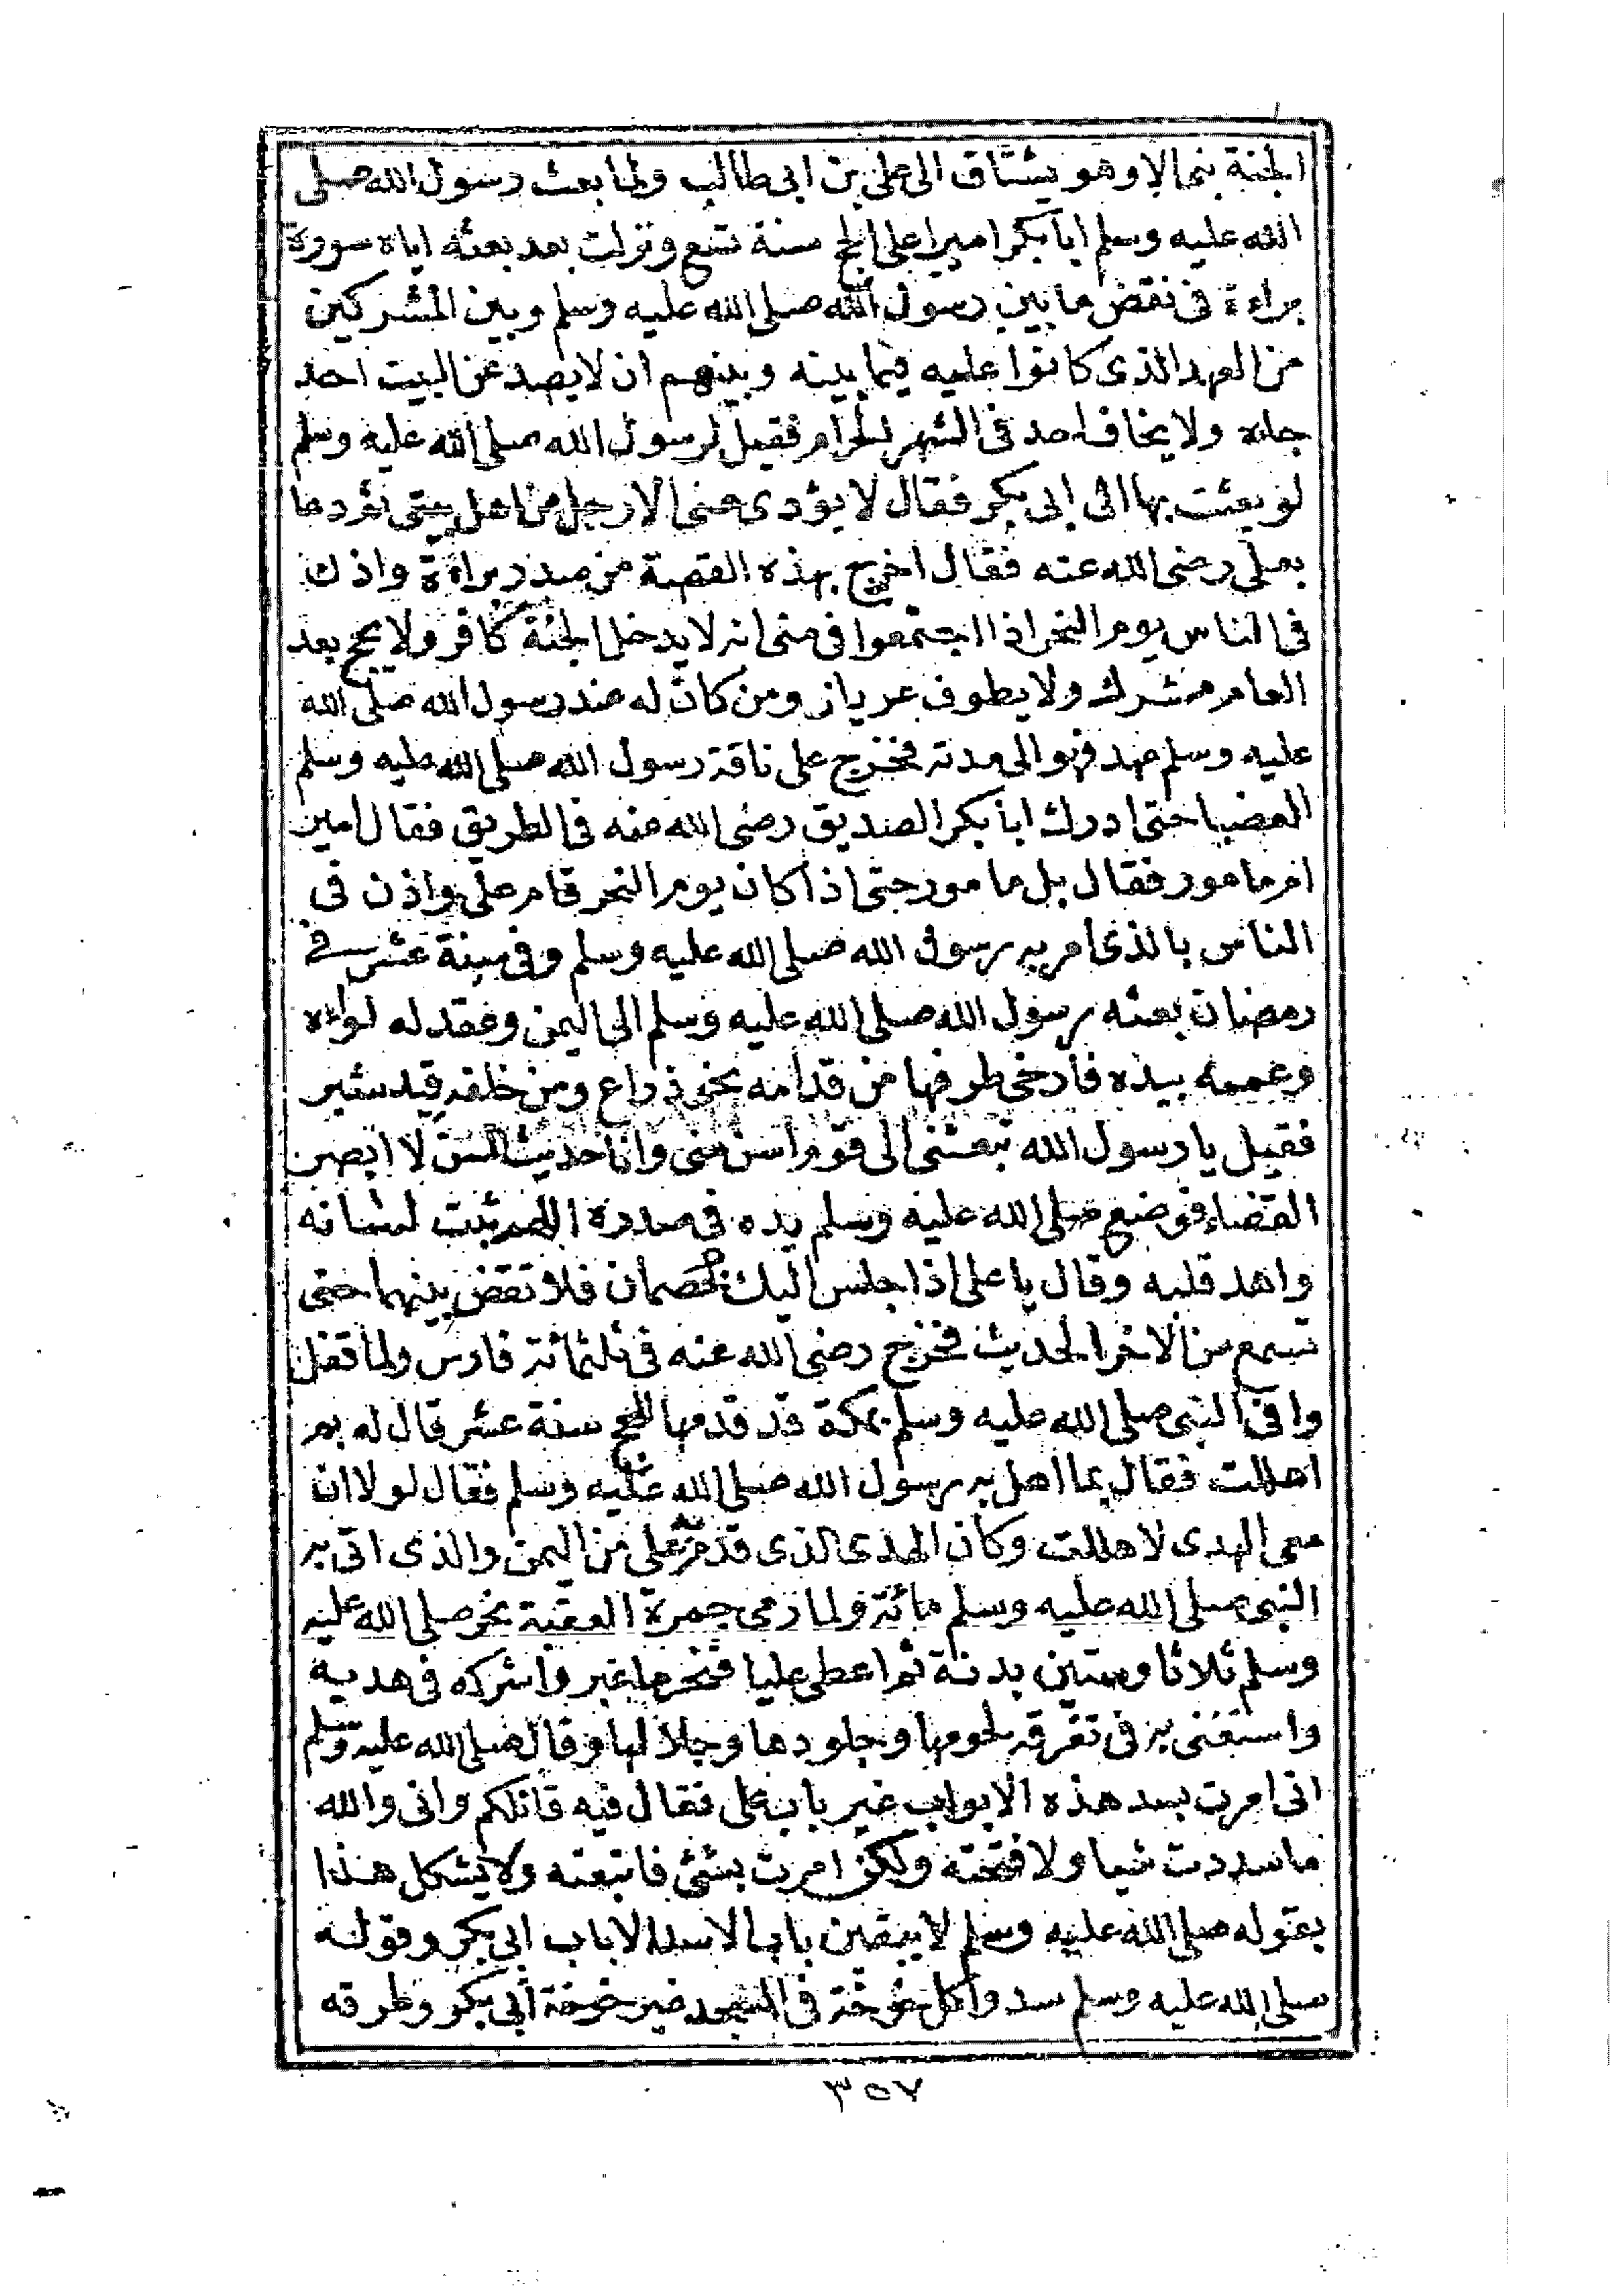 الجنة بنى الا وهو يشتاق الى على بن ابى طالب ولما بعث رسول الله صلى
الله عليه وسلم ابا بكر اميرا على الحج سنة تسع ونزلت بعد بعثه اياه سورة
براءة فى نقض ما بين رسول الله صلى الله عليه وسلم وبين المشركين
من العهد الذى كانوا عليه فيما بينه وبينهم ان لا يصد عن البيت احد
جاءه ولا يخاف احد فى الشهر الحرام فقيل لرسول الله صلى الله عليه وسلم
لو بعثت بها الى ابى بكر فقال لا يؤدى عنى الا رجل من اهل بيتى ثم دعا
بعلى رضى الله عنه فقال اخرج بهذه القصة من صدر براءة واذن
فى الناس يوم النحر اذا اجتمعوا فى منى انه لا يدخل الجنة كافر ولا يحج بعد
العام مشرك ولا يطوف عريان ومن كان له عند رسول الله صلى الله
عليه وسلم عهد فهو الى مدته فخرج على ناقة رسول الله صلى الله عليه وسلم
العضبا حتى ادرك ابا بكر الصديق رضى الله عنه فى الطريق فقال امير
ام مامور فقال بل مامور حتى اذا كان يوم النحر قام على واذن فى
الناس بالذى امر به رسول الله صلى الله عليه وسلم وفى سنة عشر فى
رمضان بعثه رسول الله صلى الله عليه وسلم الى اليمن وعقد له لواءه
وعممه بيده فارخى طرفها من قدامه نحو ذراع ومن خلفه قيد شبر
فقيل يا رسول الله تبعثنى الى قوم اسن منى وانا حديث السن لا ابصر
القضاء فوضع صلى الله عليه وسلم يده فى صدره اللهم ثبت لسانه
واهد قلبه وقال يا على اذا جلس اليك خصمان فلا تقض بينهما حتى
تسمع من الاخر الحديث فخرج رضى الله عنه فى ثلثمائة فارس ولما قفل
وافى النبى صلى الله عليه وسلم بمكة قد قدمها للحج سنة عشر قال له بم
اهللت فقال بما اهل به رسول الله صلى الله عليه وسلم فقال لولا ان
معى الهدى لاهللت وكان الهدى الذى قدم به على من اليمن والذى اتى به
النبى صلى الله عليه وسلم مائة ولما رمى جمرة العقبة نحر صلى الله عليه
وسلم ثلاثا وستين بدنة ثم اعطى عليا فنحر ما غبر واشركه فى هديه
واستغنى به فى تفرقه لحومها وجلودها وجلالها وقال صلى الله عليه وسلم
انى امرت بسد هذه الابواب غير باب على فقال فيه قائلكم وانى والله
ما سددت شيا ولا فتحته ولكن امرت بشئ فاتبعته ولا يشكل هذا
بقوله صلى الله عليه وسلم لا يبقين باب الا سد الا باب ابى بكر وقوله
صلى الله عليه وسلم سدوا كل خوخة فى المسجد غير خوخة ابى بكر وطرقه
٣٥٧